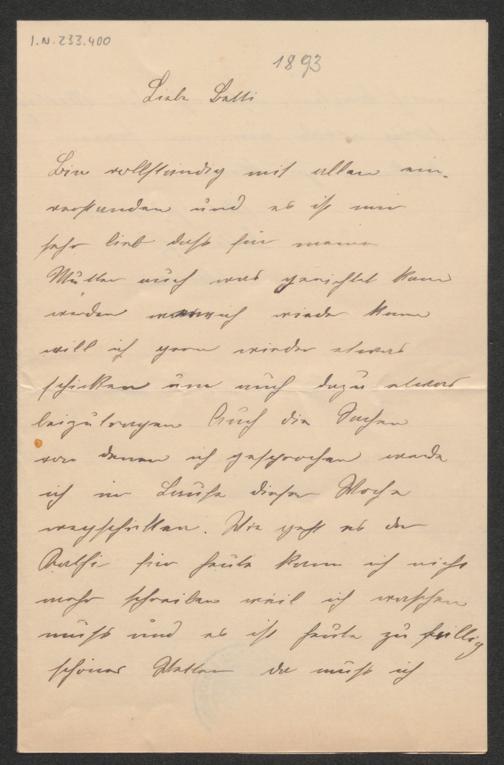 I.N. 233.400
1893
Liebe Betti
Bin vollständig mit allem ein-
verstanden und es ist mir
sehr lieb daß für meine
Mutter auch was gerichtet kann
werden wenn ich wieder kann
will ich gern wieder etwas
schicken um auch dazu etwas
beizutragen Auch die Sachen
von denen ich gesprochen werde
ich im Laufe dieser Woche
wegschicken. Wie geht es der
für heute kann ich nicht
mehr schreiben weil ich waschen
muß und es ist heute zufällig
schönes Wetter da muß ich